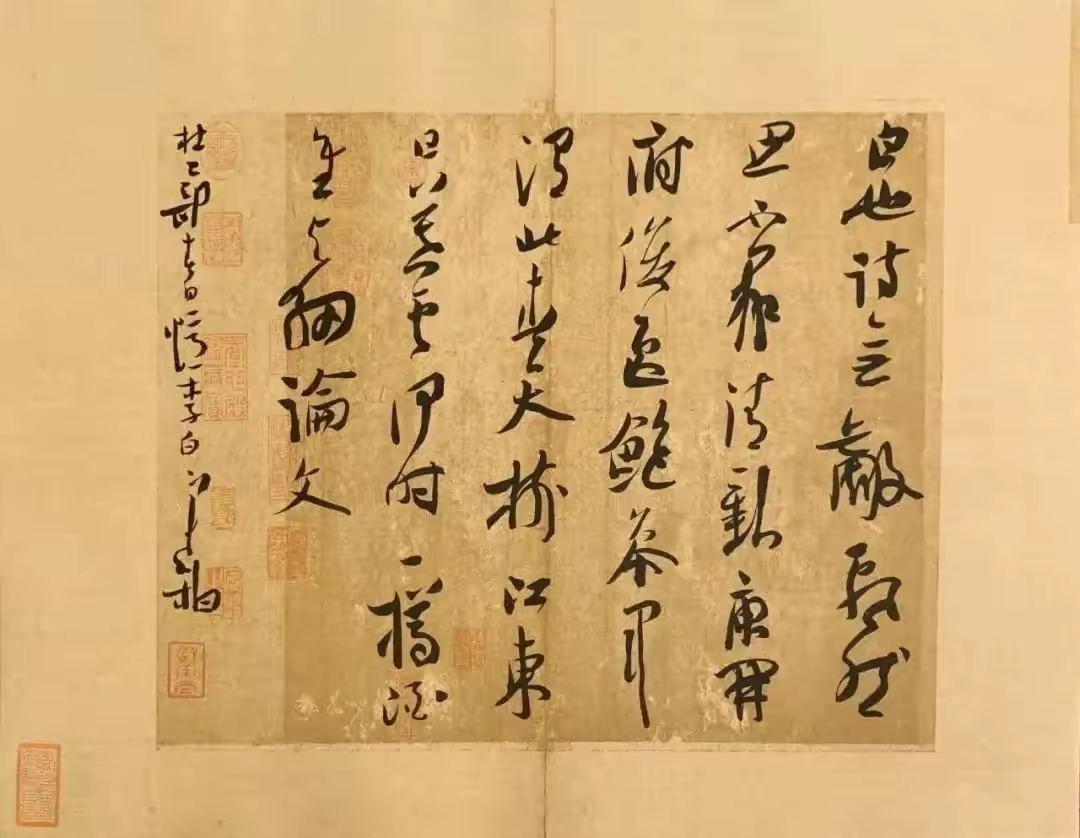 白也詩無敵飄然
思不羣清新庾開
府俊逸鮑參軍
渭北春天樹江東
日暮雲何時一樽酒
重與細論文
杜工部春日憶李白